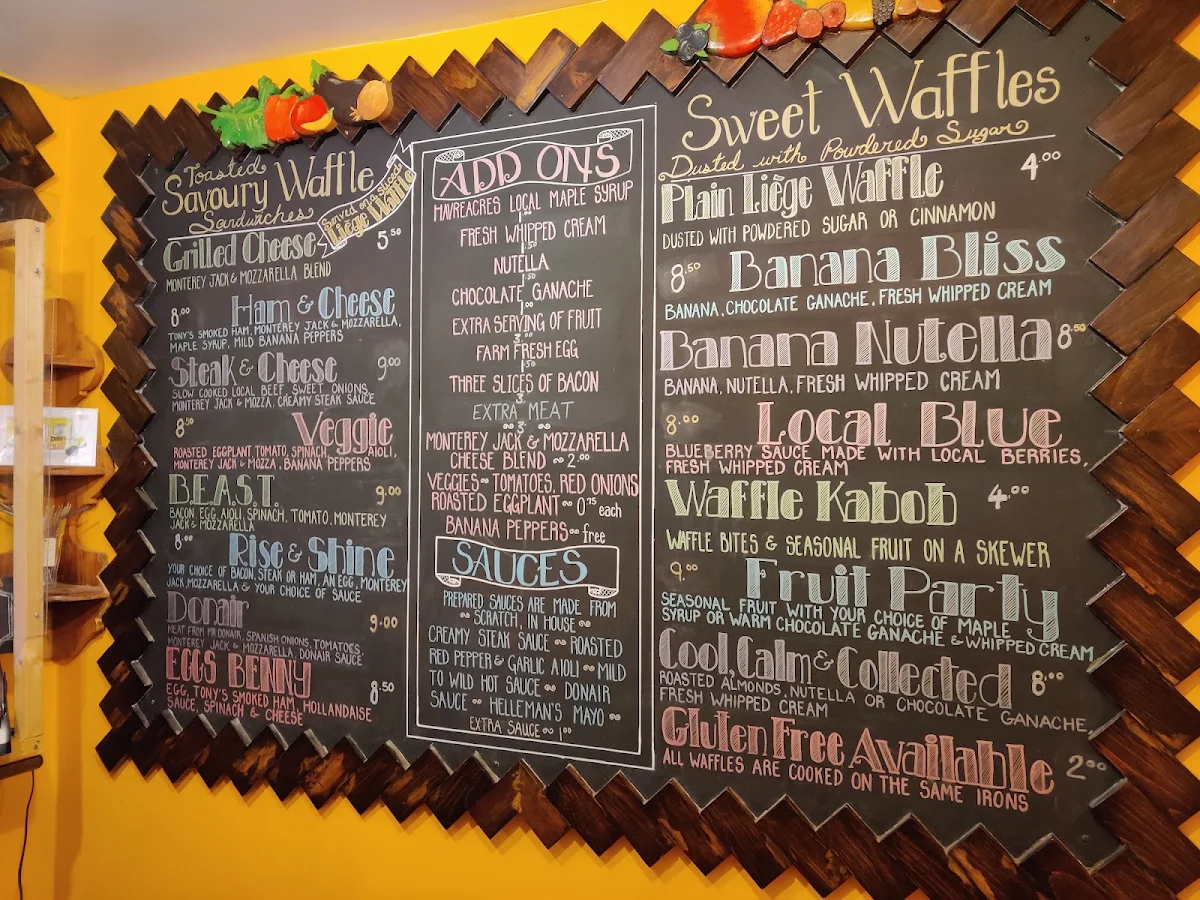 Toasted
Savoury Waffle
Sandwiches
Served on a sugar
Liège Waffle
Grilled Cheese 5.50
MONTEREY JACK & MOZZARELLA BLEND
8.00 Ham & Cheese
TONY'S SMOKED HAM, MONTEREY JACK & MOZZARELLA,
MAPLE SYRUP, MILD BANANA PEPPERS
Steak & Cheese 9.00
SLOW COOKED LOCAL BEEF, SWEET ONIONS,
MONTEREY JACK & MOZZA, CREAMY STEAK SAUCE
8.50 Veggie
ROASTED EGGPLANT, TOMATO, SPINACH, AIOLI,
MONTEREY JACK & MOZZA, BANANA PEPPERS
B.E.A.S.T. 9.00
BACON, EGG, AIOLI, SPINACH, TOMATO, MONTEREY
JACK & MOZZARELLA
8.00 Rise & Shine
YOUR CHOICE OF BACON, STEAK OR HAM, AN EGG, MONTEREY
JACK, MOZZARELLA & YOUR CHOICE OF SAUCE
Donair 9.00
MEAT FROM MR DONAIR, SPANISH ONIONS, TOMATOES,
MONTEREY JACK & MOZZARELLA, DONAIR SAUCE
EGGS BENNY 8.50
EGG, TONY'S SMOKED HAM, HOLLANDAISE
SAUCE, SPINACH & CHEESE
ADD ONS
HAVREACRES LOCAL MAPLE SYRUP
FRESH WHIPPED CREAM
.50
NUTELLA
1.50
CHOCOLATE GANACHE
EXTRA SERVING OF FRUIT
3.00
FARM FRESH EGG
THREE SLICES OF BACON
3.
EXTRA MEAT
3.
MONTEREY JACK & MOZZARELLA
CHEESE BLEND ~ 2.00
VEGGIES ~ TOMATOES, RED ONIONS
ROASTED EGGPLANT ~ 0.75 each
BANANA PEPPERS ~ free
SAUCES
PREPARED SAUCES ARE MADE FROM
~ SCRATCH, IN HOUSE ~
CREAMY STEAK SAUCE ~ ROASTED
RED PEPPER & GARLIC AIOLI ~ MILD
TO WILD HOT SAUCE ~ DONAIR
SAUCE ~ HELLEMAN'S MAYO ~
EXTRA SAUCE ~ 1.00
Sweet Waffles
Dusted with Powdered Sugar
Plain Liège Waffle 4.00
DUSTED WITH POWDERED SUGAR OR CINNAMON
8.50 Banana Bliss
BANANA, CHOCOLATE GANACHE, FRESH WHIPPED CREAM
Banana Nutella 8.50
BANANA, NUTELLA, FRESH WHIPPED CREAM
8.00 Local Blue
BLUEBERRY SAUCE MADE WITH LOCAL BERRIES,
FRESH WHIPPED CREAM
Waffle Kabob 4.00
WAFFLE BITES & SEASONAL FRUIT ON A SKEWER
9.00 Fruit Party
SEASONAL FRUIT WITH YOUR CHOICE OF MAPLE
SYRUP OR WARM CHOCOLATE GANACHE & WHIPPED CREAM
Cool, Calm & Collected 8.00
ROASTED ALMONDS, NUTELLA OR CHOCOLATE GANACHE,
FRESH WHIPPED CREAM
Gluten Free Available 2.00
ALL WAFFLES ARE COOKED ON THE SAME IRONS